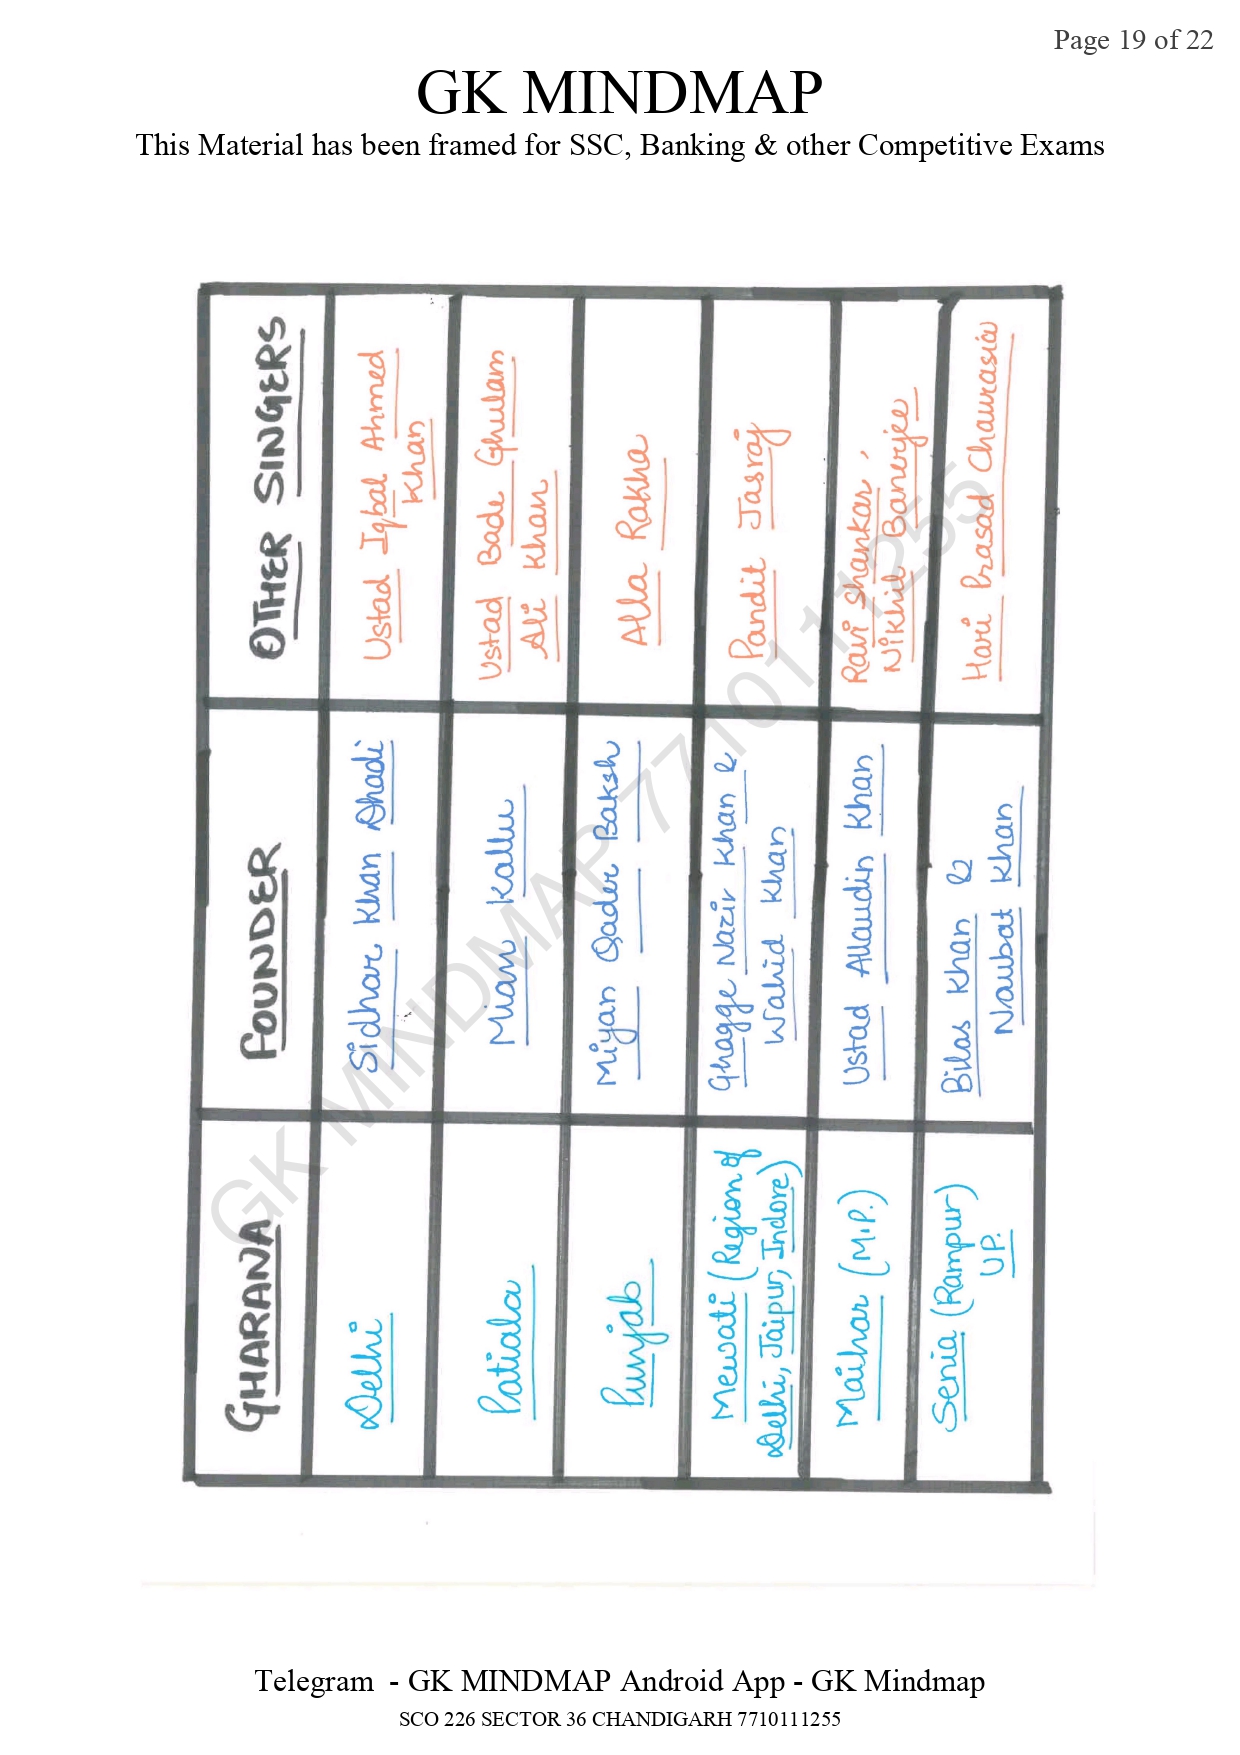 Page 19 of 22
GK MINDMAP
This Material has been framed for SSC, Banking & other Competitive Exams
GHARANA
FOUNDER
OTHER SINGERS
Delhi
Sidhar Khan Dhadi
Ustad Iqbal Ahmed
Khan
Patiala
Mian Kallu
Ustad Bade Ghulam
Ali Khan
Punjab
Miyan Qader Baksh
Alla Rakha
Mewati (Region of
Delhi, Jaipur, Indore)
Ghagge Nazir Khan &
Wahid Khan
Pandit Jasraj
Maihar (M.P.)
Ustad Allaudin Khan
Ravi Shankar,
Nikhil Banerjee
Senia (Rampur)
UP.
Bilas Khan &
Naubat Khan
Hari Prasad Chaurasia
GK MINDMAP 7710111255
Telegram - GK MINDMAP Android App - GK Mindmap
SCO 226 SECTOR 36 CHANDIGARH 7710111255